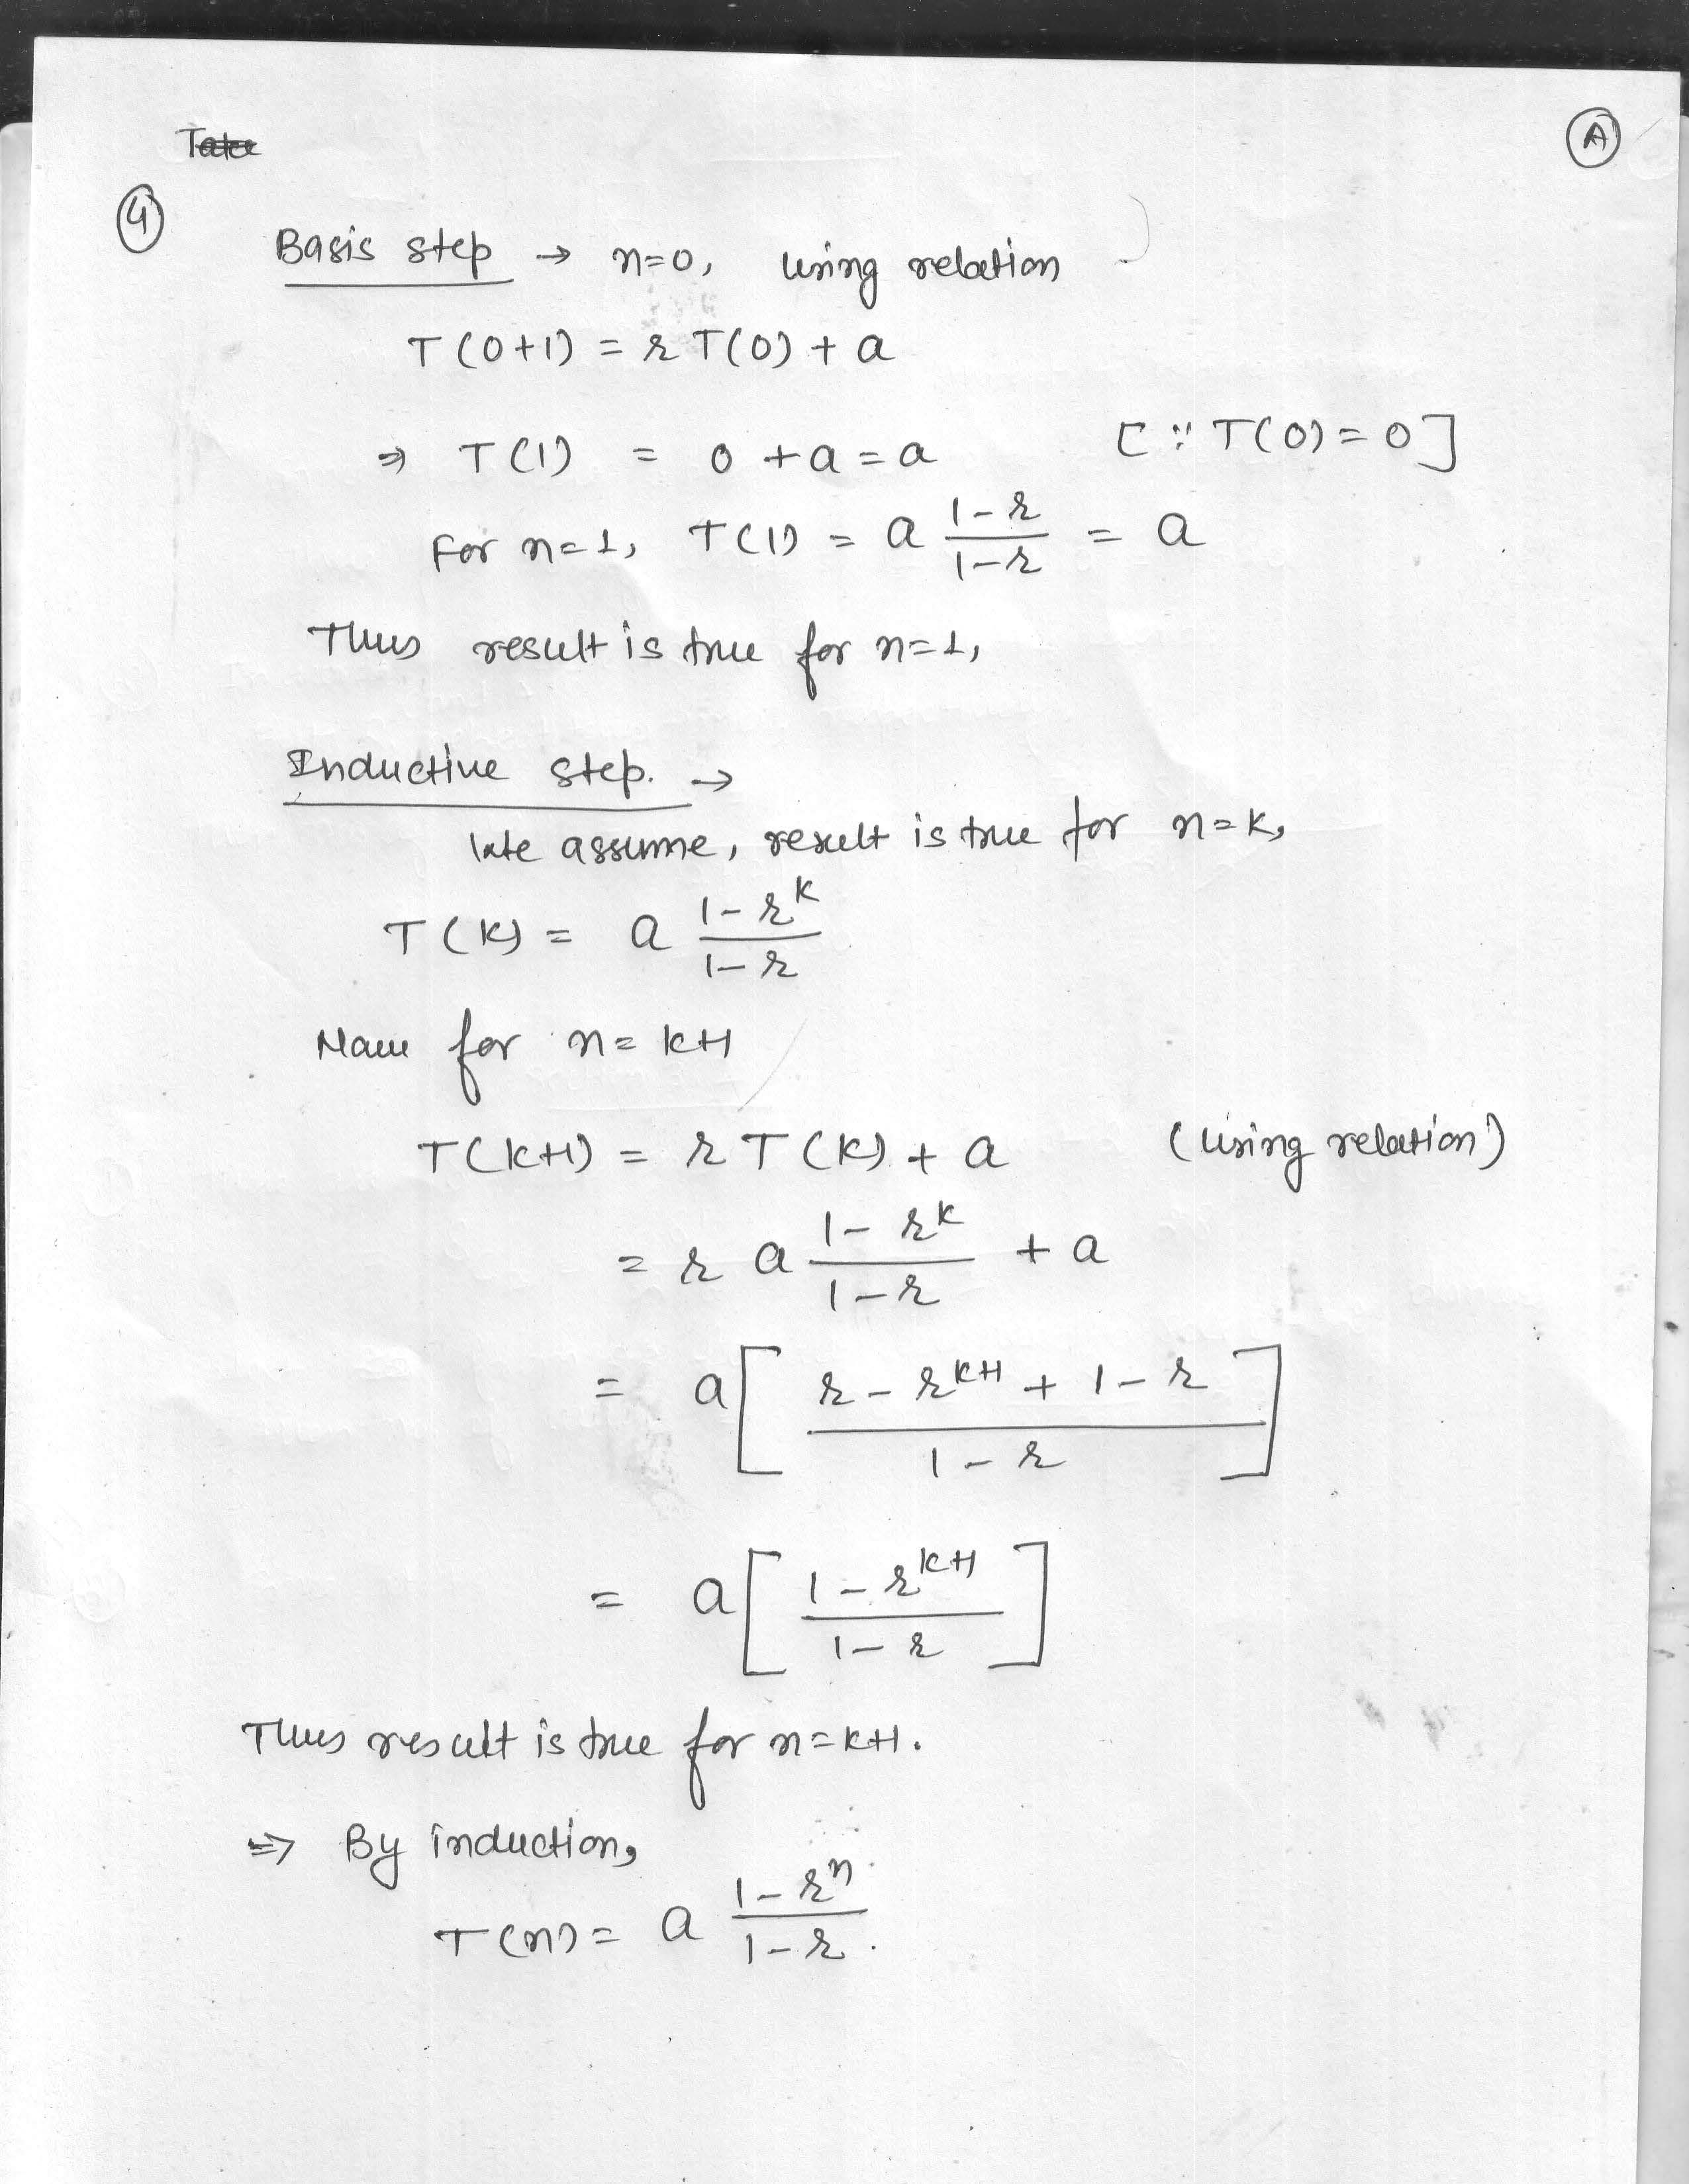 Tate
Ⓐ
④
Basis step → n=0, using relation
T(0+1) = r T(0) + a
⇒ T(1) = 0 + a = a [∵ T(0) = 0]
For n=1, T(1) = a (1-r)/(1-r) = a
Thus result is true for n=1,
Inductive step. →
We assume, result is true for n=k,
T(k) = a (1-r^k)/(1-r)
Now for n = k+1
T(k+1) = r T(k) + a (using relation)
= r a (1-r^k)/(1-r) + a
= a [ (r - r^(k+1) + 1 - r)/(1-r) ]
= a [ (1-r^(k+1))/(1-r) ]
Thus result is true for n=k+1.
⇒ By induction,
T(n) = a (1-r^n)/(1-r).